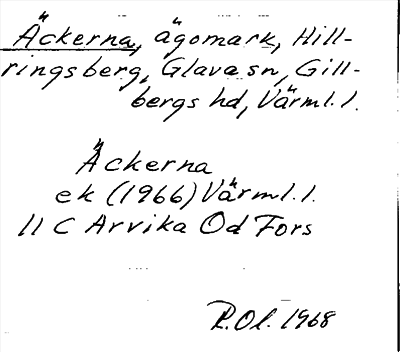 Äckerna, ägomark, Hill-
ringsberg, Glava sn, Gill-
bergs hd, Värml. l.
Äckerna
ek (1966) Värml. l.
11 C Arvika Od Fors
R.Ol. 1968